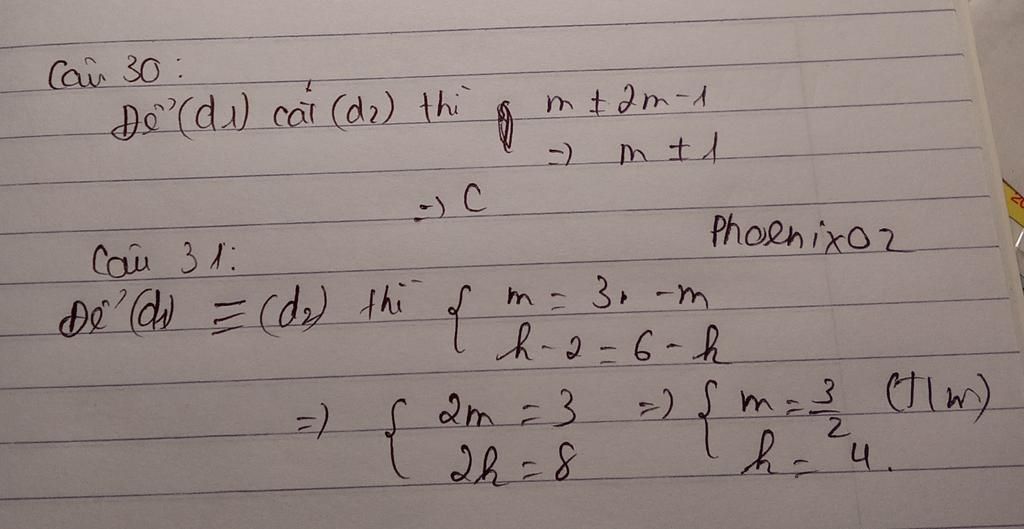 Câu 30:
Để (d1) cắt (d2) thì m ≠ 2m - 1
=> m ≠ 1
=> C
Phoenix02
Câu 31:
Để (d1) ≡ (d2) thì { m = 3 - m
k - 2 = 6 - k
=> { 2m = 3 => { m = 3/2 (T/m)
2k = 8 k = 4.